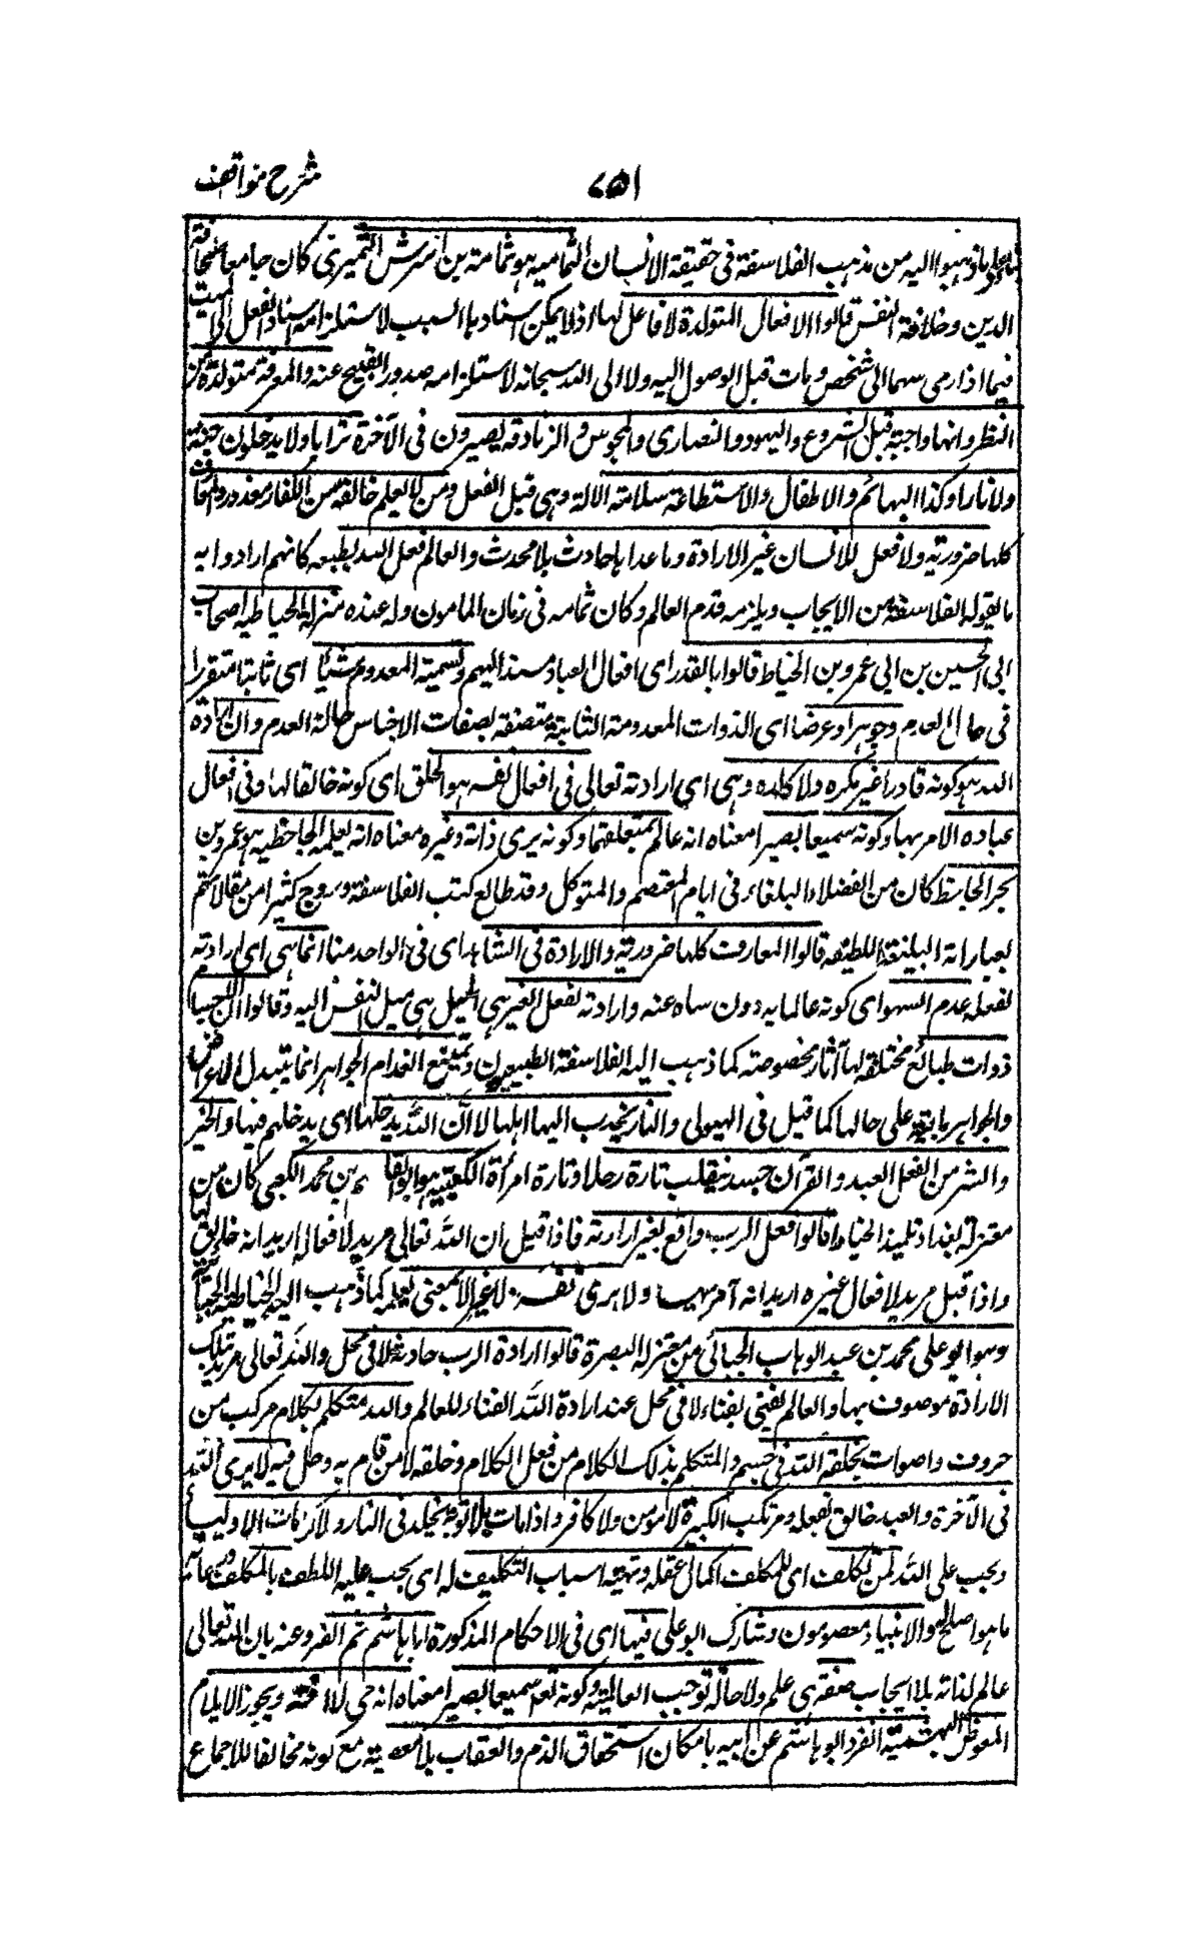 شرح مواقف
٧٥١
ما ذهبوا اليه من مذهب الفلاسفة فى حقيقة الانسان الثمامية هو ثمامة بن اشرس النميرى كان جامعا سخافة
الدين وخلاعة النفس قالوا الافعال المتولدة لا فاعل لها اذ لا يمكن اسنادها السبب لاستلزامه اسناد الفعل الى الميت
فيما اذا رمى سهما الى شخص ومات قبل الوصول اليه ولا الى الله سبحانه لاستلزامه صدور القبيح عنه والمعرفة متولدة من
النظر وانها واجبة قبل الشروع واليهود والنصارى والمجوس والزنادقة يصيرون فى الآخرة ترابا ولا يدخلون جنة
ولا نارا وكذا البهائم والاطفال والاستطاعة سلامة الالة وهى قبل الفعل ومن لا يعلم خالقه من الكفار معذور والمعارف
كلها ضرورية ولا فعل للانسان غير الارادة وما عداها حادث بلا محدث والعالم فعل الله بطبعه كانهم ارادوا به
ما يقوله الفلاسفة من الايجاب ويلزمه قدم العالم وكان ثمامه فى زمان المامون وله عنده منزلة الخياطية اصحاب
ابى الحسين بن ابى عمرو بن الخياط قالوا بالقدر اى افعال العباد مسندا اليهم وتسمية المعدوم شيئا اى ثابتا متقررا
فى حال العدم وجوهرا وعرضا اى الذوات المعدومة الثابتة متصفة بصفات الاجناس حالة العدم وان ارادة
الله هو كونه قادرا غير مكره ولا كاره وهى اى ارادته تعالى فى افعال نفسه هو الخلق اى كونه خالقا لها وفى افعال
عباده الامر بها وكونه سميعا بصيرا معناه انه عالم بمتعلقهما وكونه يرى ذاته وغيره معناه انه يعلمه الجاحظية هو عمرو بن
بحر الجاحظ كان من الفضلاء البلغاء فى ايام المعتصم والمتوكل وقد طالع كتب الفلاسفة وروج كثيرا من مقالاتهم
بعباراته البليغة اللطيفه قالوا المعارف كلها ضرورية والارادة فى الشاهد اى فى الواحد منا انما هى اى ارادته
لفعله عدم السهو اى كونه عالما به دون ساه عنه وارادته لفعل الغير هى الميل هى ميل النفس اليه وقالوا ان الاجسام
ذوات طبائع مختلفة لها آثار مخصوصة كما ذهب اليه الفلاسفة الطبيعيون ويمتنع انعدام الجواهر انما يتبدل الاعراض
والجواهر باقية على حالها كما قيل فى الهيولى والنار تجذب اليها اهلها لا ان الله يدخلها اى يدخلهم فيها والخير
والشر من الفعل العبد والقرآن جسد ينقلب تارة رجلا وتارة امرأة الكعبية هو ابو القاسم بن محمد الكعبى كان من
معتزلة بغداد تلميذ الخياط قالوا فعل الرب واقع بغير ارادته فاذا قيل ان الله تعالى مريد لافعاله اريد انه خالق لها
واذا قيل مريد لافعال غيره اريد انه آمر بها ولا يرى نفسه ولا غيره الا بمعنى يعلمه كما ذهب اليه الخياطية الجبائية
وهو ابو على محمد بن عبد الوهاب الجبائى من معتزلة البصرة قالوا ارادة الرب حادثة لا فى محل والله تعالى مريد بتلك
الارادة موصوف بها والعالم يفنى بفناء لا فى محل عند ارادة الله الفناء للعالم والله متكلم بكلام مركب من
حروف واصوات يخلقه الله فى جسم والمتكلم بذلك الكلام من فعل الكلام وخلقه لا من قام به وحل فيه لا يرى الله
فى الآخرة والعبد خالق لفعله ومرتكب الكبيرة لا مؤمن ولا كافر واذا مات بلا توبة يخلد فى النار ولا كرامات للاولياء
ويجب على الله لمن يكلف اى للمكلف اكمال عقله وتهيئه اسباب التكليف له اى يجب عليه اللطف بالمكلف ورعاية
ما هو اصلح له والانبياء معصومون وشارك ابو على فيها اى فى الاحكام المذكورة ابا هاشم ثم انفرد عنه بان الله تعالى
عالم لذاته بلا ايجاب صفة هى علم ولا حالة توجب العالمية وكونه تعالى سميعا بصيرا معناه انه حى لا آفة به ويجوز الايلام
للعوض البهشمية انفرد ابو هاشم عن ابيه بامكان استحقاق الذم والعقاب بلا معصية مع كونه مخالفا للاجماع